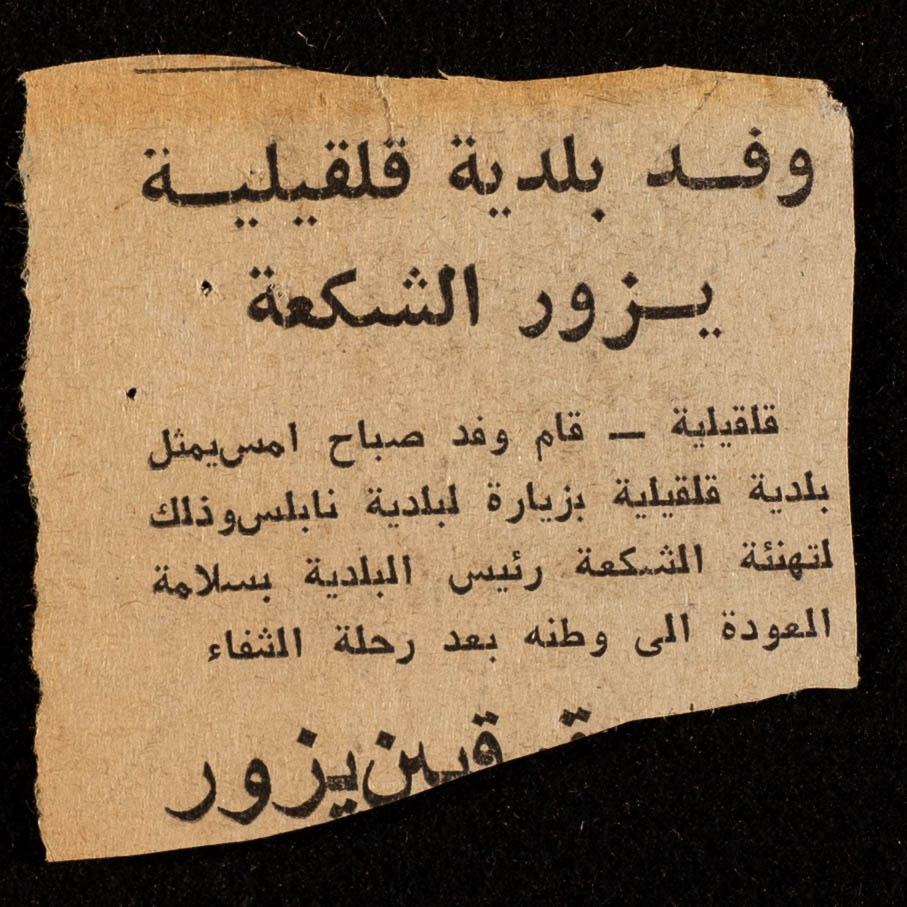 وفد بلدية قلقيلية
يزور الشكعة
قلقيلية — قام وفد صباح امس يمثل
بلدية قلقيلية بزيارة لبلدية نابلس وذلك
لتهنئة الشكعة رئيس البلدية بسلامة
العودة الى وطنه بعد رحلة الثفاء
يزور